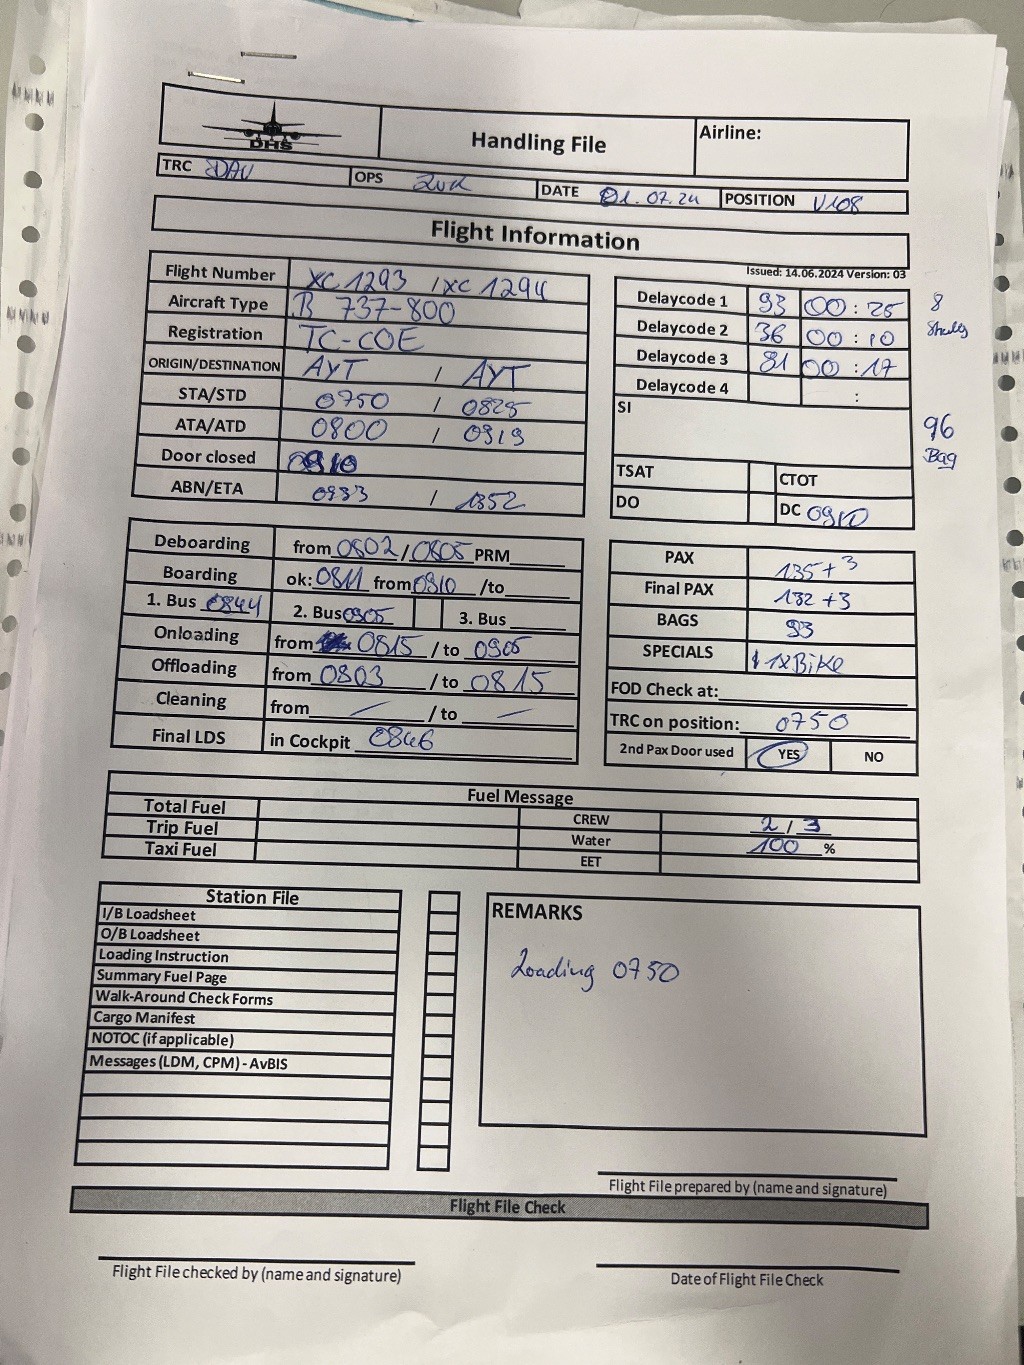 DHS
Handling File
Airline:
TRC
OPS
DATE 01.07.24
POSITION V108
Flight Information
Issued: 14.06.2024 Version: 03
Flight Number XC 1293 / XC 1294
Aircraft Type B 737-800
Registration TC-COE
ORIGIN/DESTINATION AYT / AYT
STA/STD 0750 / 0825
ATA/ATD 0800 / 0919
Door closed 0910
ABN/ETA 0933 / 1352
Delaycode 1 93 00:25
Delaycode 2 36 00:10
Delaycode 3 81 00:17
Delaycode 4 :
SI
TSAT CTOT
DO DC 0910
8
96
Bag
Deboarding from 0802 / 0805 PRM
Boarding ok: 0811 from 0910 /to
1. Bus 0844 2. Bus 0905 3. Bus
Onloading from 0815 / to 0905
Offloading from 0803 / to 0815
Cleaning from — / to —
Final LDS in Cockpit 0846
PAX 135+3
Final PAX 132+3
BAGS 93
SPECIALS 1xBike
FOD Check at:
TRC on position: 0750
2nd Pax Door used YES NO
Fuel Message
Total Fuel CREW 2/3
Trip Fuel Water 100 %
Taxi Fuel EET
Station File
I/B Loadsheet
O/B Loadsheet
Loading Instruction
Summary Fuel Page
Walk-Around Check Forms
Cargo Manifest
NOTOC (if applicable)
Messages (LDM, CPM) - AvBIS
REMARKS
Loading 0750
Flight File prepared by (name and signature)
Flight File Check
Flight File checked by (name and signature)
Date of Flight File Check